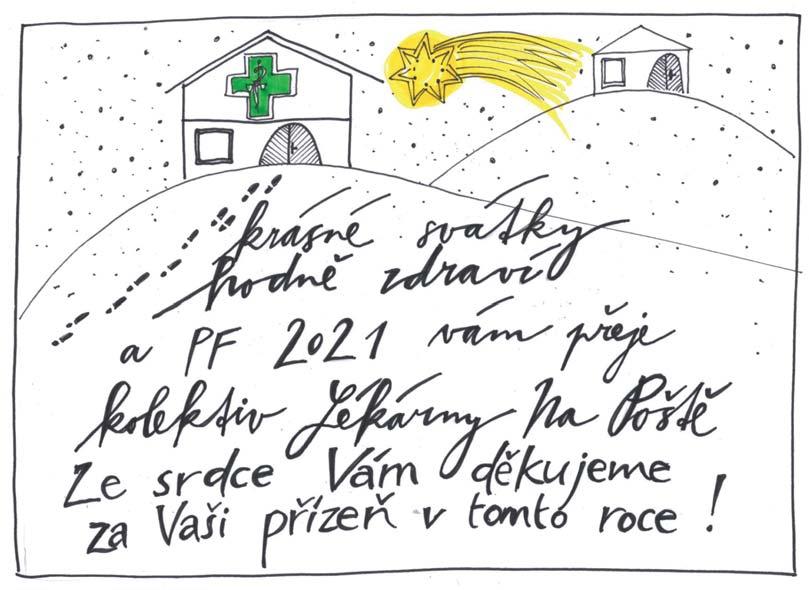 krásné svátky
hodně zdraví
a PF 2021 vám přeje
kolektiv Lékárny Na Poště
Ze srdce Vám děkujeme
za Vaši přízeň v tomto roce!